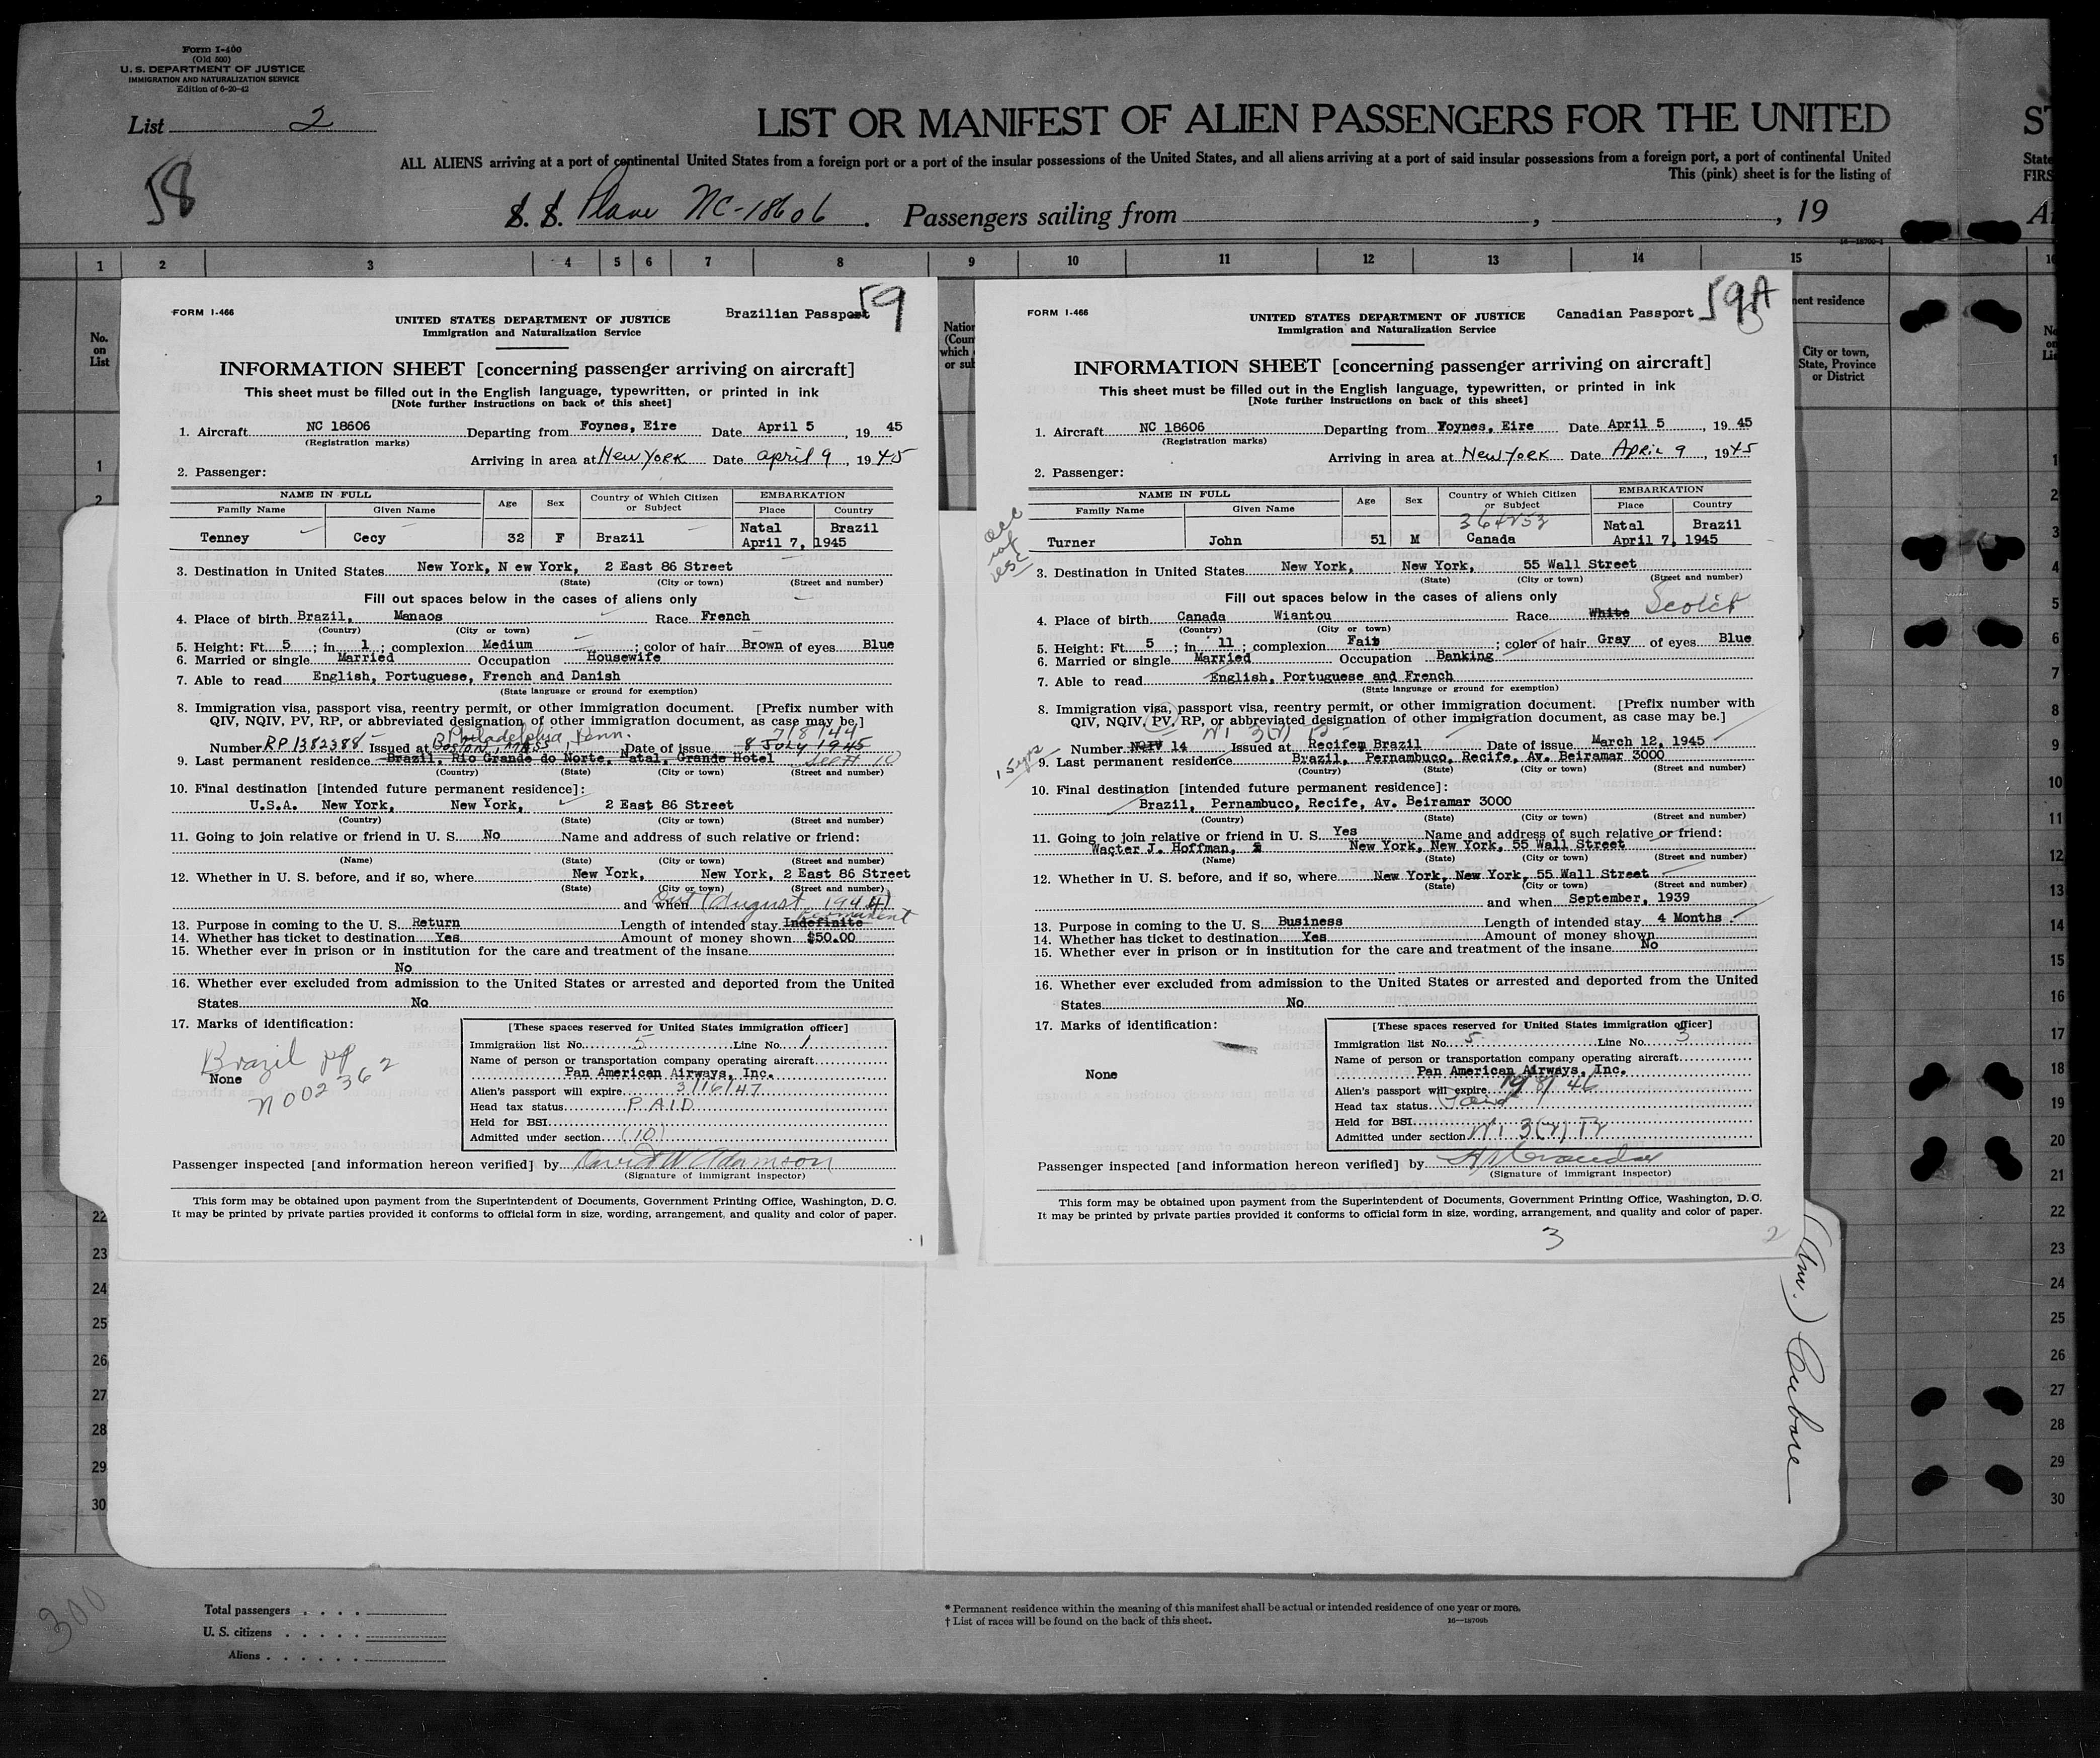 Form I-400
(Old 500)
U. S. DEPARTMENT OF JUSTICE
IMMIGRATION AND NATURALIZATION SERVICE
Edition of 6-20-42
List 2
58
LIST OR MANIFEST OF ALIEN PASSENGERS FOR THE UNITED
ST
ALL ALIENS arriving at a port of continental United States from a foreign port or a port of the insular possessions of the United States, and all aliens arriving at a port of said insular possessions from a foreign port, a port of continental United
State
This (pink) sheet is for the listing of
FIRS
S. S. Plane NC-18606. Passengers sailing from , , 19
1 2 3 4 5 6 7 8 9 10 11 12 13 14 15
No. on List
ment residence
City or town, State, Province or District
59
FORM I-466
Brazilian Passport
UNITED STATES DEPARTMENT OF JUSTICE
Immigration and Naturalization Service
INFORMATION SHEET [concerning passenger arriving on aircraft]
This sheet must be filled out in the English language, typewritten, or printed in ink
[Note further instructions on back of this sheet]
1. Aircraft NC 18606 Departing from Foynes, Eire Date April 5, 19 45
(Registration marks)
Arriving in area at New York Date april 9, 19 45
2. Passenger:
NAME IN FULL Age Sex Country of Which Citizen or Subject EMBARKATION
Family Name Given Name Place Country
Natal Brazil
Tenney Cecy 32 F Brazil April 7, 1945
3. Destination in United States New York, N ew York, 2 East 86 Street
(State) (City or town) (Street and number)
Fill out spaces below in the cases of aliens only
4. Place of birth Brazil, Manaos Race French
(Country) (City or town)
5. Height: Ft. 5 ; in 1 ; complexion Medium ; color of hair Brown of eyes Blue
6. Married or single Married Occupation Housewife
7. Able to read English, Portuguese, French and Danish
(State language or ground for exemption)
8. Immigration visa, passport visa, reentry permit, or other immigration document. [Prefix number with
QIV, NQIV, PV, RP, or abbreviated designation of other immigration document, as case may be.]
Philadelphia, Penn. 7/8/44
Number RP 1382388 Issued at Boston, Mass, Date of issue 8 July 1945
9. Last permanent residence Brazil, Rio Grande do Norte, Natal, Grande Hotel See # 10
(Country) (State) (City or town) (Street and number)
10. Final destination [intended future permanent residence]:
U.S.A. New York, New York, 2 East 86 Street
(Country) (State) (City or town) (Street and number)
11. Going to join relative or friend in U. S. No Name and address of such relative or friend:
(Name) (State) (City or town) (Street and number)
12. Whether in U. S. before, and if so, where New York, New York, 2 East 86 Street
(State) (City or town) (Street and number)
and when (August 1944)
permanent
13. Purpose in coming to the U. S. Return Length of intended stay Indefinite
14. Whether has ticket to destination Yes Amount of money shown $50.00
15. Whether ever in prison or in institution for the care and treatment of the insane
No
16. Whether ever excluded from admission to the United States or arrested and deported from the United
States No
17. Marks of identification:
Brazil pp
None
N 002362
[These spaces reserved for United States immigration officer]
Immigration list No. 5 Line No. 1
Name of person or transportation company operating aircraft
Pan American Airways, Inc.
Alien's passport will expire 3/16/47
Head tax status PAID
Held for BSI
Admitted under section (10)
Passenger inspected [and information hereon verified] by David W Adamson
(Signature of immigrant inspector)
This form may be obtained upon payment from the Superintendent of Documents, Government Printing Office, Washington, D. C.
It may be printed by private parties provided it conforms to official form in size, wording, arrangement, and quality and color of paper.
1
59A
FORM I-466
Canadian Passport
UNITED STATES DEPARTMENT OF JUSTICE
Immigration and Naturalization Service
INFORMATION SHEET [concerning passenger arriving on aircraft]
This sheet must be filled out in the English language, typewritten, or printed in ink
[Note further instructions on back of this sheet]
1. Aircraft NC 18606 Departing from Foynes, Eire Date April 5, 19 45
(Registration marks)
Arriving in area at New York Date April 9, 19 45
2. Passenger:
NAME IN FULL Age Sex Country of Which Citizen or Subject EMBARKATION
Family Name Given Name Place Country
364853 Natal Brazil
Turner John 51 M Canada April 7, 1945
3. Destination in United States New York, New York, 55 Wall Street
(State) (City or town) (Street and number)
Fill out spaces below in the cases of aliens only
4. Place of birth Canada Wiantou Race White Scotch
(Country) (City or town)
5. Height: Ft. 5 ; in 11 ; complexion Fair ; color of hair Gray of eyes Blue
6. Married or single Married Occupation Banking
7. Able to read English, Portuguese and French
(State language or ground for exemption)
8. Immigration visa, passport visa, reentry permit, or other immigration document. [Prefix number with
QIV, NQIV, PV, RP, or abbreviated designation of other immigration document, as case may be.]
Number NQIV 14 Issued at Recifem Brazil Date of issue March 12, 1945
9. Last permanent residence Brazil, Pernambuco, Recife, Av. Beiramar 3000
(Country) (State) (City or town) (Street and number)
10. Final destination [intended future permanent residence]:
Brazil, Pernambuco, Recife, Av. Beiramar 3000
(Country) (State) (City or town) (Street and number)
11. Going to join relative or friend in U. S. Yes Name and address of such relative or friend:
Wacter J. Hoffman, New York, New York, 55 Wall Street
(Name) (State) (City or town) (Street and number)
12. Whether in U. S. before, and if so, where New York, New York, 55 Wall Street
(State) (City or town) (Street and number)
and when September, 1939
13. Purpose in coming to the U. S. Business Length of intended stay 4 Months
14. Whether has ticket to destination Yes Amount of money shown
15. Whether ever in prison or in institution for the care and treatment of the insane No
16. Whether ever excluded from admission to the United States or arrested and deported from the United
States No
17. Marks of identification:
None
[These spaces reserved for United States immigration officer]
Immigration list No. 5 Line No. 3
Name of person or transportation company operating aircraft
Pan American Airways, Inc.
Alien's passport will expire
Head tax status Paid
Held for BSI
Admitted under section
Passenger inspected [and information hereon verified] by
(Signature of immigrant inspector)
This form may be obtained upon payment from the Superintendent of Documents, Government Printing Office, Washington, D. C.
It may be printed by private parties provided it conforms to official form in size, wording, arrangement, and quality and color of paper.
3
2
300
Total passengers
U. S. citizens
Aliens
* Permanent residence within the meaning of this manifest shall be actual or intended residence of one year or more.
† List of races will be found on the back of this sheet.
16—18700b